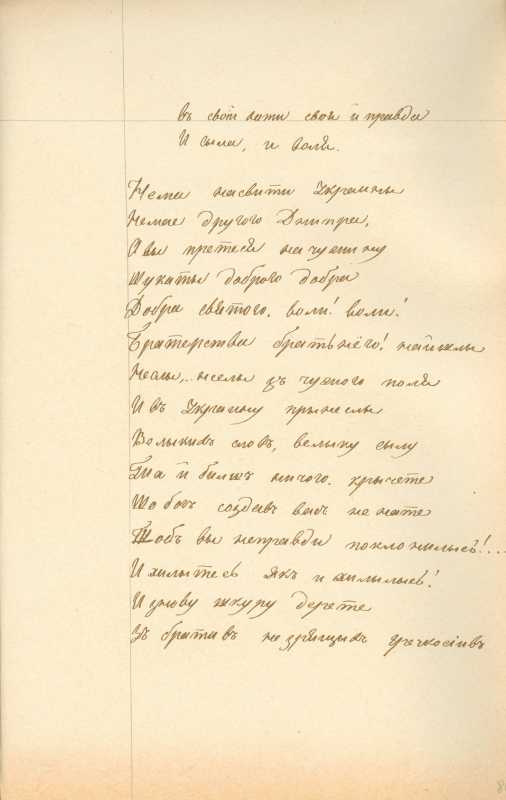 въ свой хати своя и правда
И сыла, и воля.
Нема на свити Украины
Немае другого Днипра,
А вы претеся на чужину
Шукаты доброго добра
Добра святого. воли! воли!
Братерства братьнёго! найшлы
Неслы,.. неслы зъ чужого поля
И въ Украину прынеслы
Велыкихъ словъ, велыку сылу
Та й билшъ ничого. крычете
Що богъ создавъ васъ не нате
Щобъ вы неправди поклонылысь!...
И хилытесь якъ и хилылысь!
И знову шкуру дерете
Зъ братівъ незрящихъ гречкосіивъ